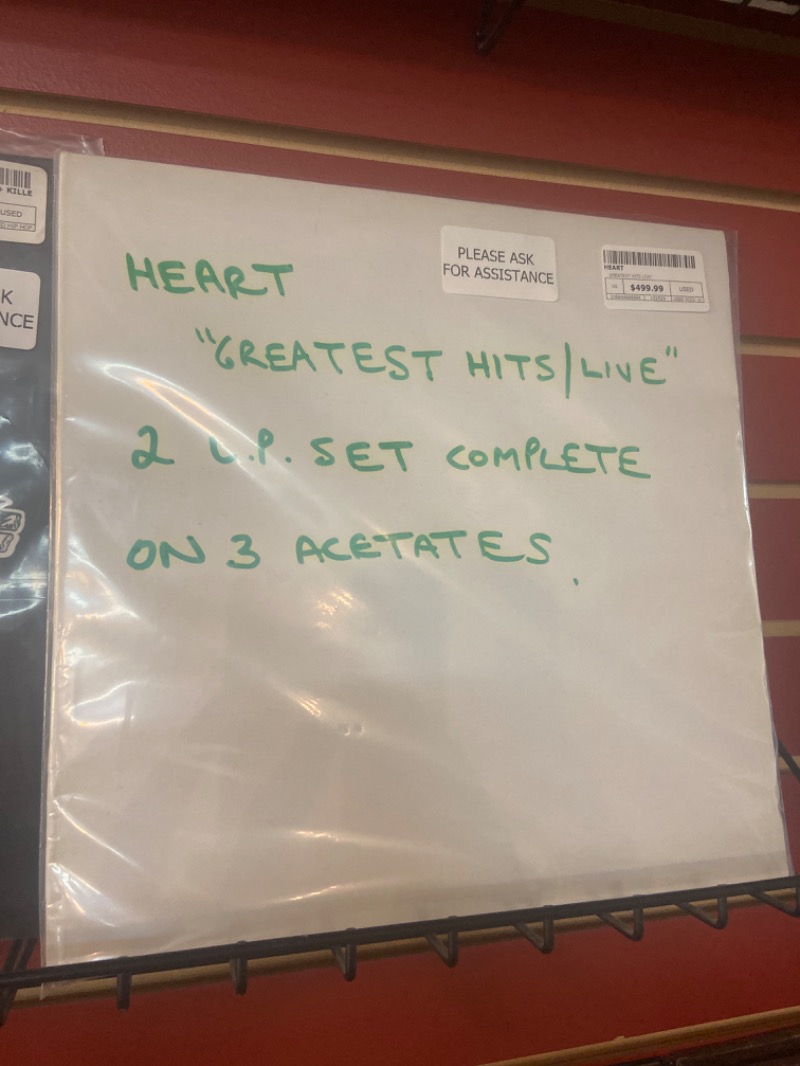 HEART
"GREATEST HITS/LIVE"
2 L.P. SET COMPLETE
ON 3 ACETATES.
PLEASE ASK
FOR ASSISTANCE
HEART
GREATEST HITS LIVE
$499.99 USED
KILLE
USED
K
NCE